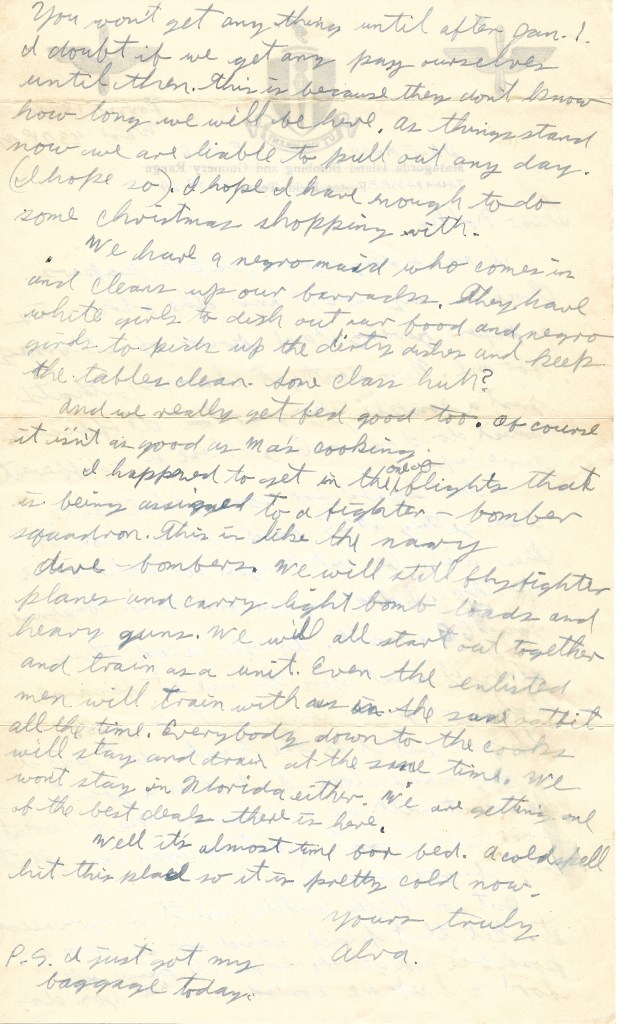 You won't get any thing until after Jan. 1.
I doubt if we get any pay ourselves
until then. This is because they don't know
how long we will be here. As things stand
now we are liable to pull out any day.
(I hope so). I hope I have enough to do
some christmas shopping with.
We have a negro maid who comes in
and cleans up our barracks. They have
white girls to dish out our food and negro
girls to pick up the dirty dishes and keep
the tables clean. Some class huh?
And we really get fed good too. Of course
it isn't as good as Ma's cooking.
I happened to get in the one of flights that
is being assigned to a fighter - bomber
squadron. This is like the navy
dive - bombers. We will still fly fighter
planes and carry light bomb loads and
heavy guns. We will all start out together
and train as a unit. Even the enlisted
men will train with us in the same outfit
all the time. Everybody down to the cooks
will stay and train at the same time. We
wont stay in Florida either. We are getting one
of the best deals there is here.
Well it's almost time for bed. A cold spell
hit this place so it is pretty cold now.
Yours truly
Alva.
P.S. I just got my
baggage today.